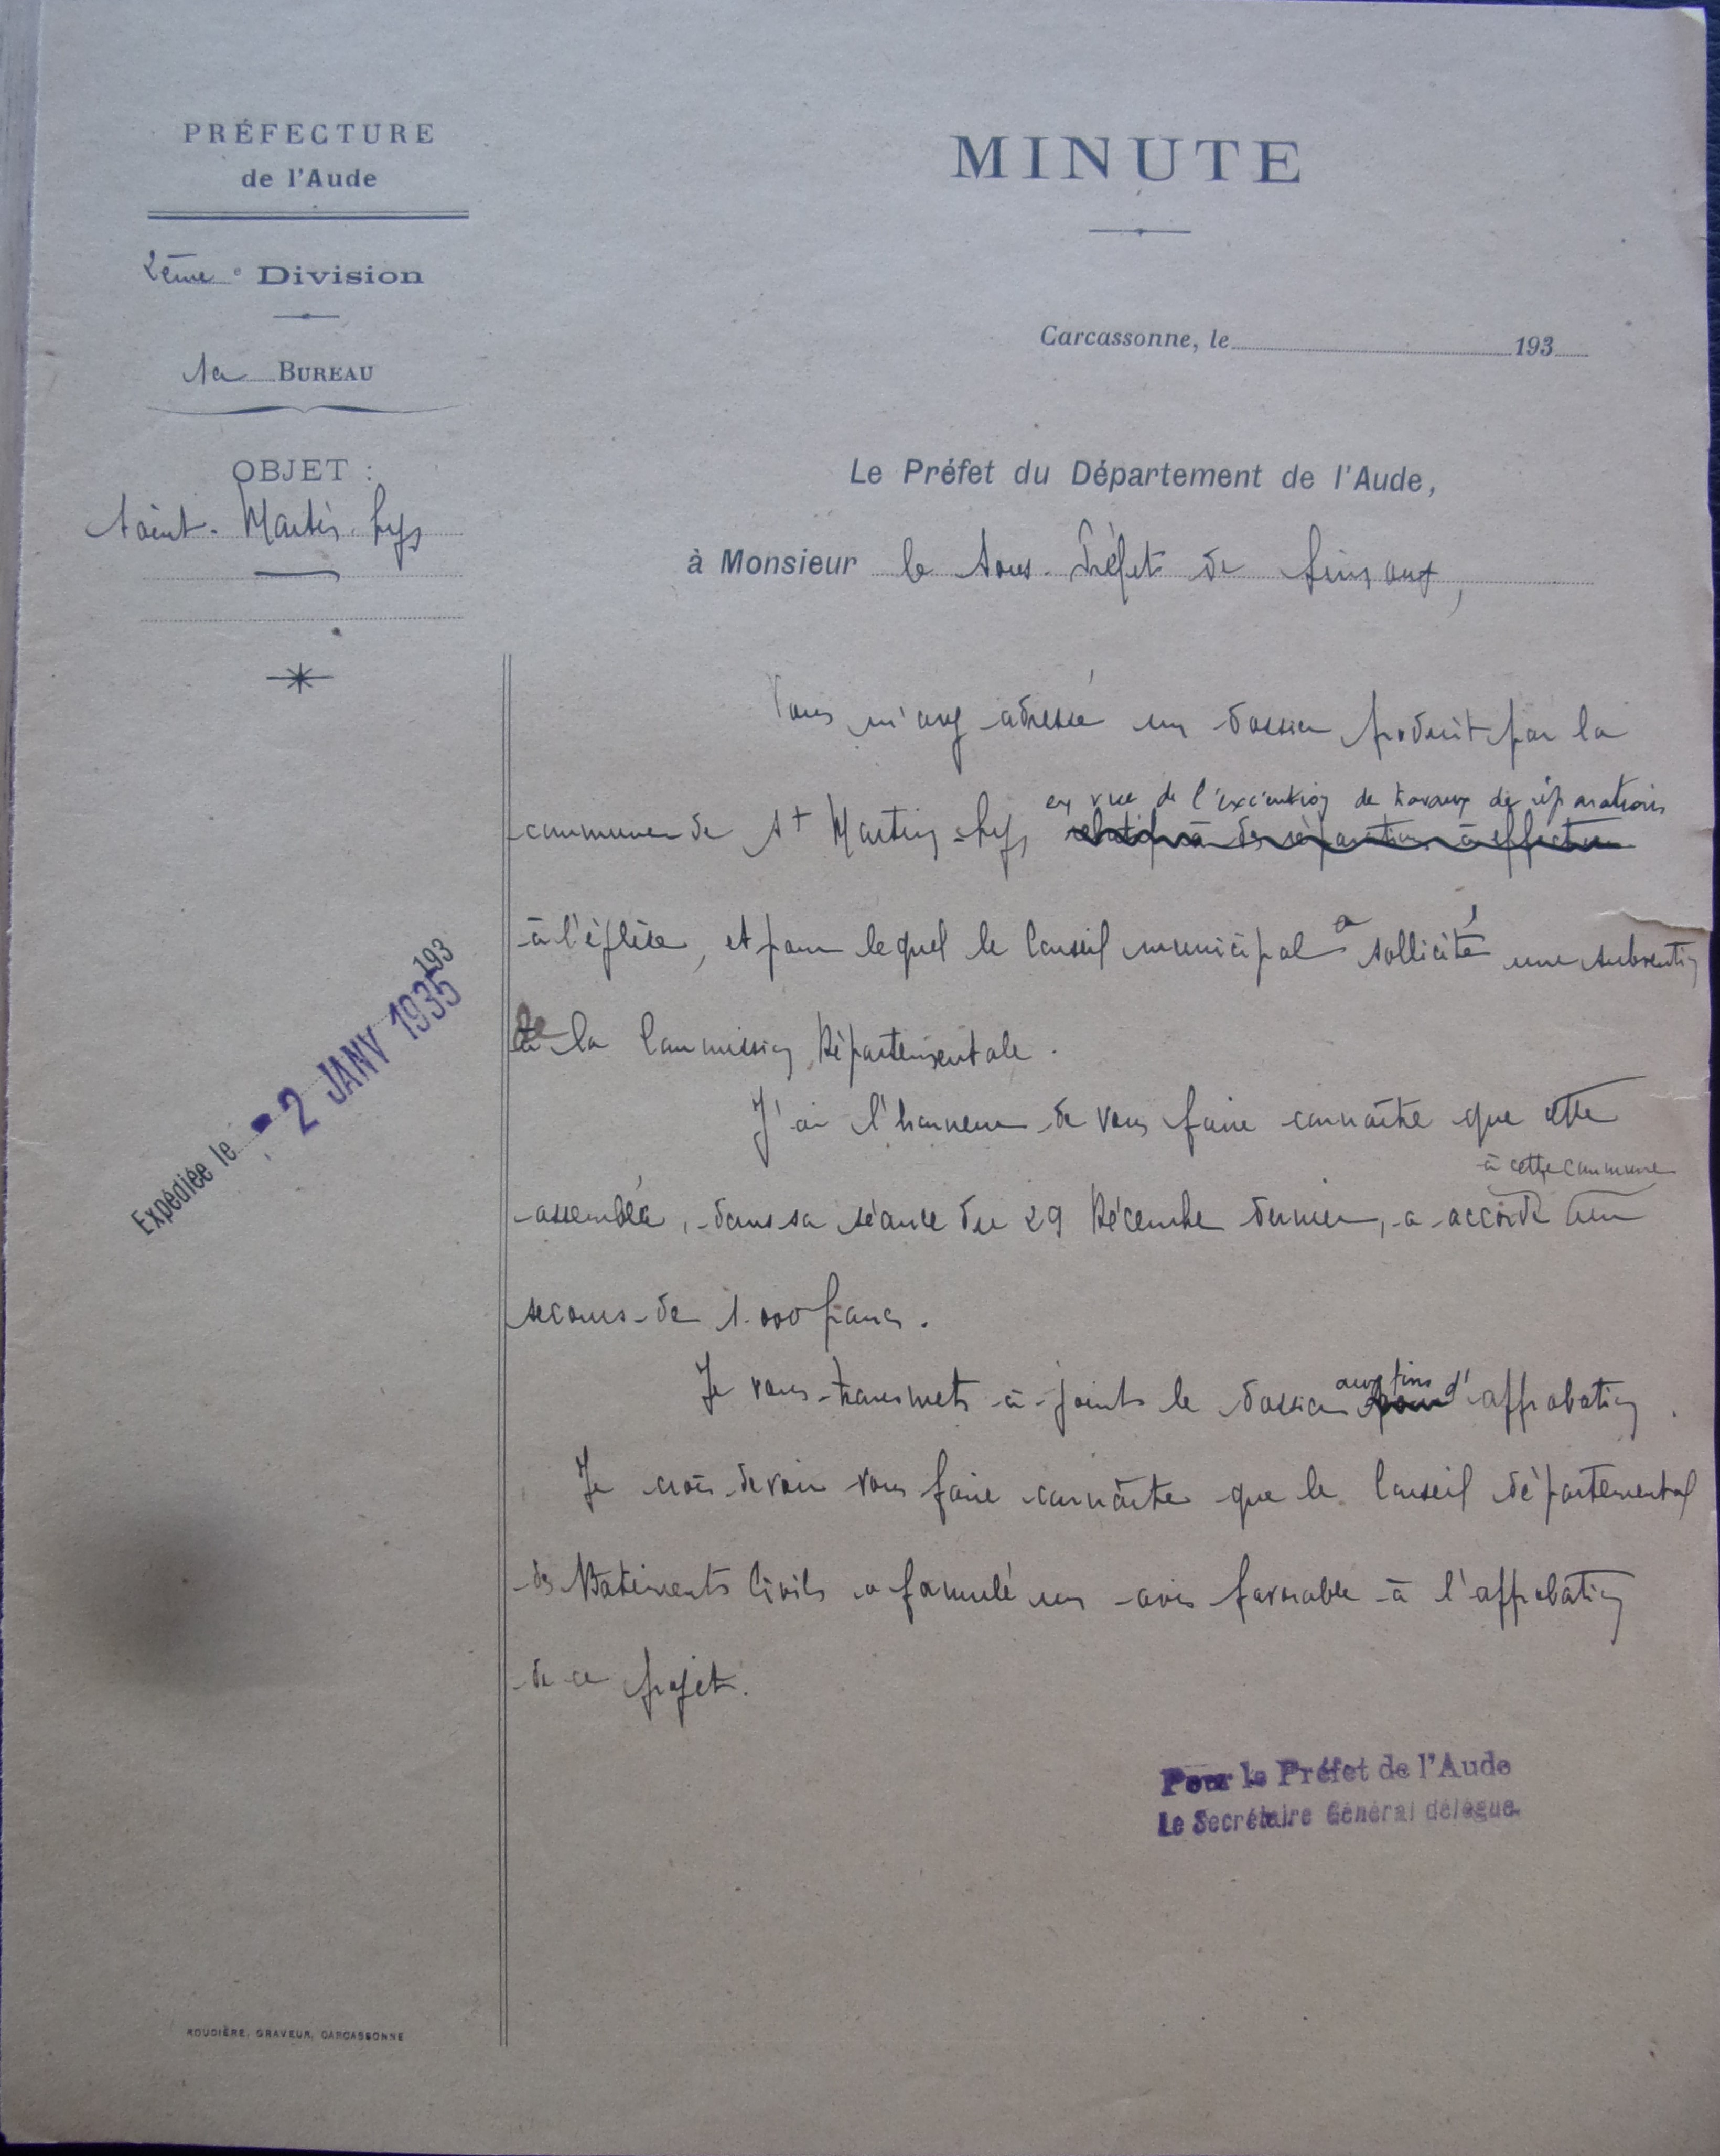 PRÉFECTURE
de l'Aude
2ème e Division
1er BUREAU
OBJET :
Saint-Martin-Lys
MINUTE
Carcassonne, le 193
Le Préfet du Département de l'Aude,
à Monsieur le Sous-Préfet de Limoux,
Vous m'avez adressé un dossier produit par la
en vue de l'exécution de travaux de réparations
commune de St Martin-Lys relatif à des réparations à effectuer
à l'église, et pour lequel le Conseil municipal a sollicité une subvention
de la Commission Départementale.
J'ai l'honneur de vous faire connaître que cette
à cette commune
assemblée, dans sa séance du 29 Décembre dernier, a accordé un
secours de 1.000 francs.
aux fins d'
Je vous transmets ci-joint le dossier pour approbation.
Je crois devoir vous faire connaître que le Conseil départemental
des Bâtiments Civils a formulé un avis favorable à l'approbation
de ce projet.
Expédiée le 193
- 2 JANV 1935
Pour le Préfet de l'Aude
Le Secrétaire Général délégué.
ROUDIÈRE, GRAVEUR, CARCASSONNE